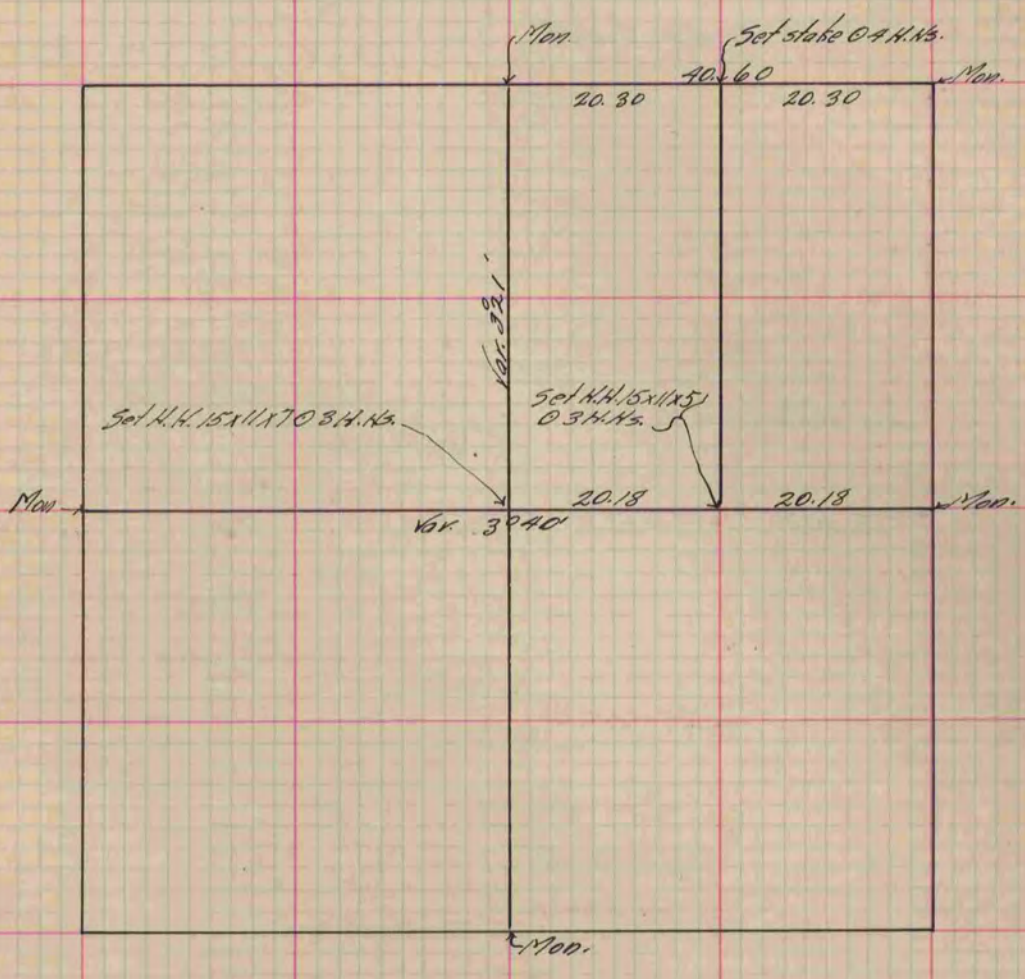 Mon.
Set stake @ 4 H.Hs.
40.60
Mon.
20.30
20.30
Var. 3°21'
Set H.H. 15x11x5
@ 3 H.Hs.
Set H.H. 15x11x7 @ 3 H.Hs.
Mon
20.18
20.18
Mon.
Var. 3°40'
Mon.